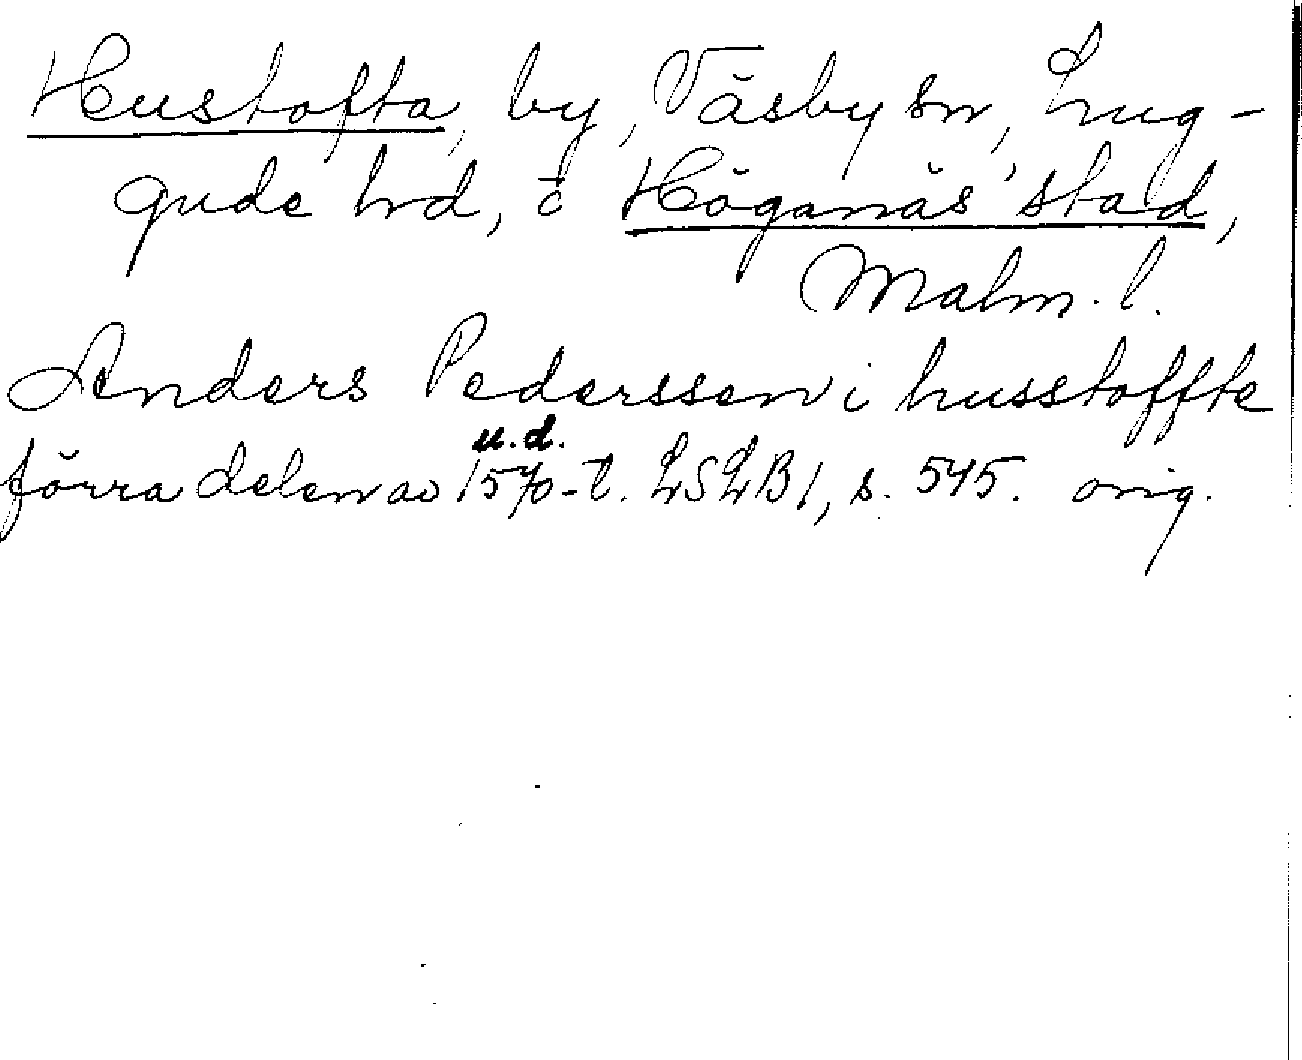 Hustofta, by, Väsby sn, Lug-
gude hd, ö Höganäs stad,
Malm. l.
Anders Pederssen i husstoffte
u.d.
förra delen av 1570-t. LSLB1, s. 545. orig.